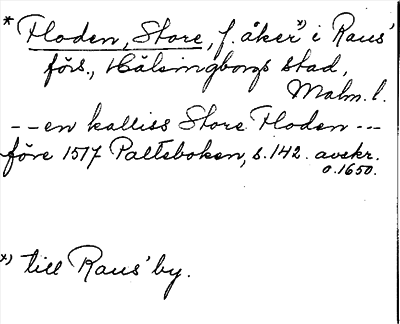 * Floden, Store, f. åker *) i Raus'
förs., Hälsingborgs stad,
Malm. l.
-- en kalliss Store Floden ---
före 1517 Palteboken, s. 142. avskr.
o. 1650.
*) till Raus' by.